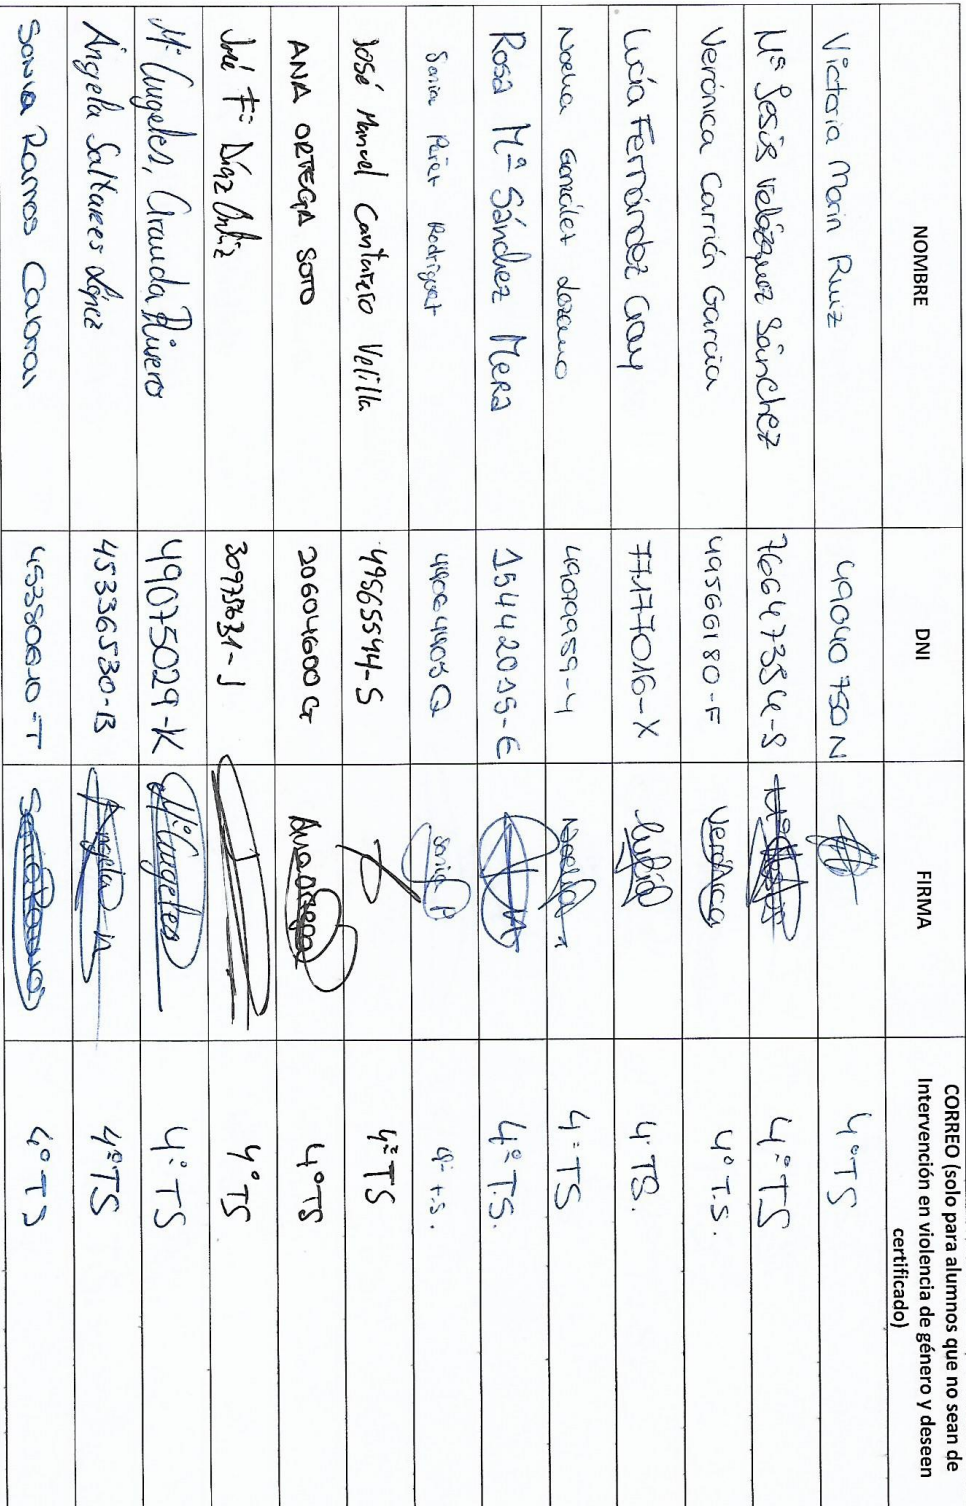 NOMBRE DNI FIRMA CORREO (solo para alumnos que no sean de Intervención en violencia de género y deseen certificado)
Victoria Marin Ruiz 49040750N 4º TS
Mª Jesús Velázquez Sánchez 4º TS
Verónica Carrión García 49566180-F Verónica 4º T.S.
Lucía Fernández Gay 77177016-X Lucía 4º TS.
Noelia González Lozano Noelia 4º TS
Rosa Mª Sánchez Mera 15442015-E 4º T.S.
Sonia Pérez Rodríguez Sonia P 4º T.S.
José Manuel Cantarero Velilla 49865544-S 4º TS
ANA ORTEGA SOTO 20604600G Ana Ortega 4º TS
José Fº Díaz 4º TS
Mª Ángeles, Granda Rivero 49075029-K Mª Ángeles 4º TS
Ángela Saltares López 45336530-B Ángela 4º TS
Sonia Ramos Cabral Sonia Ramos 4º TS